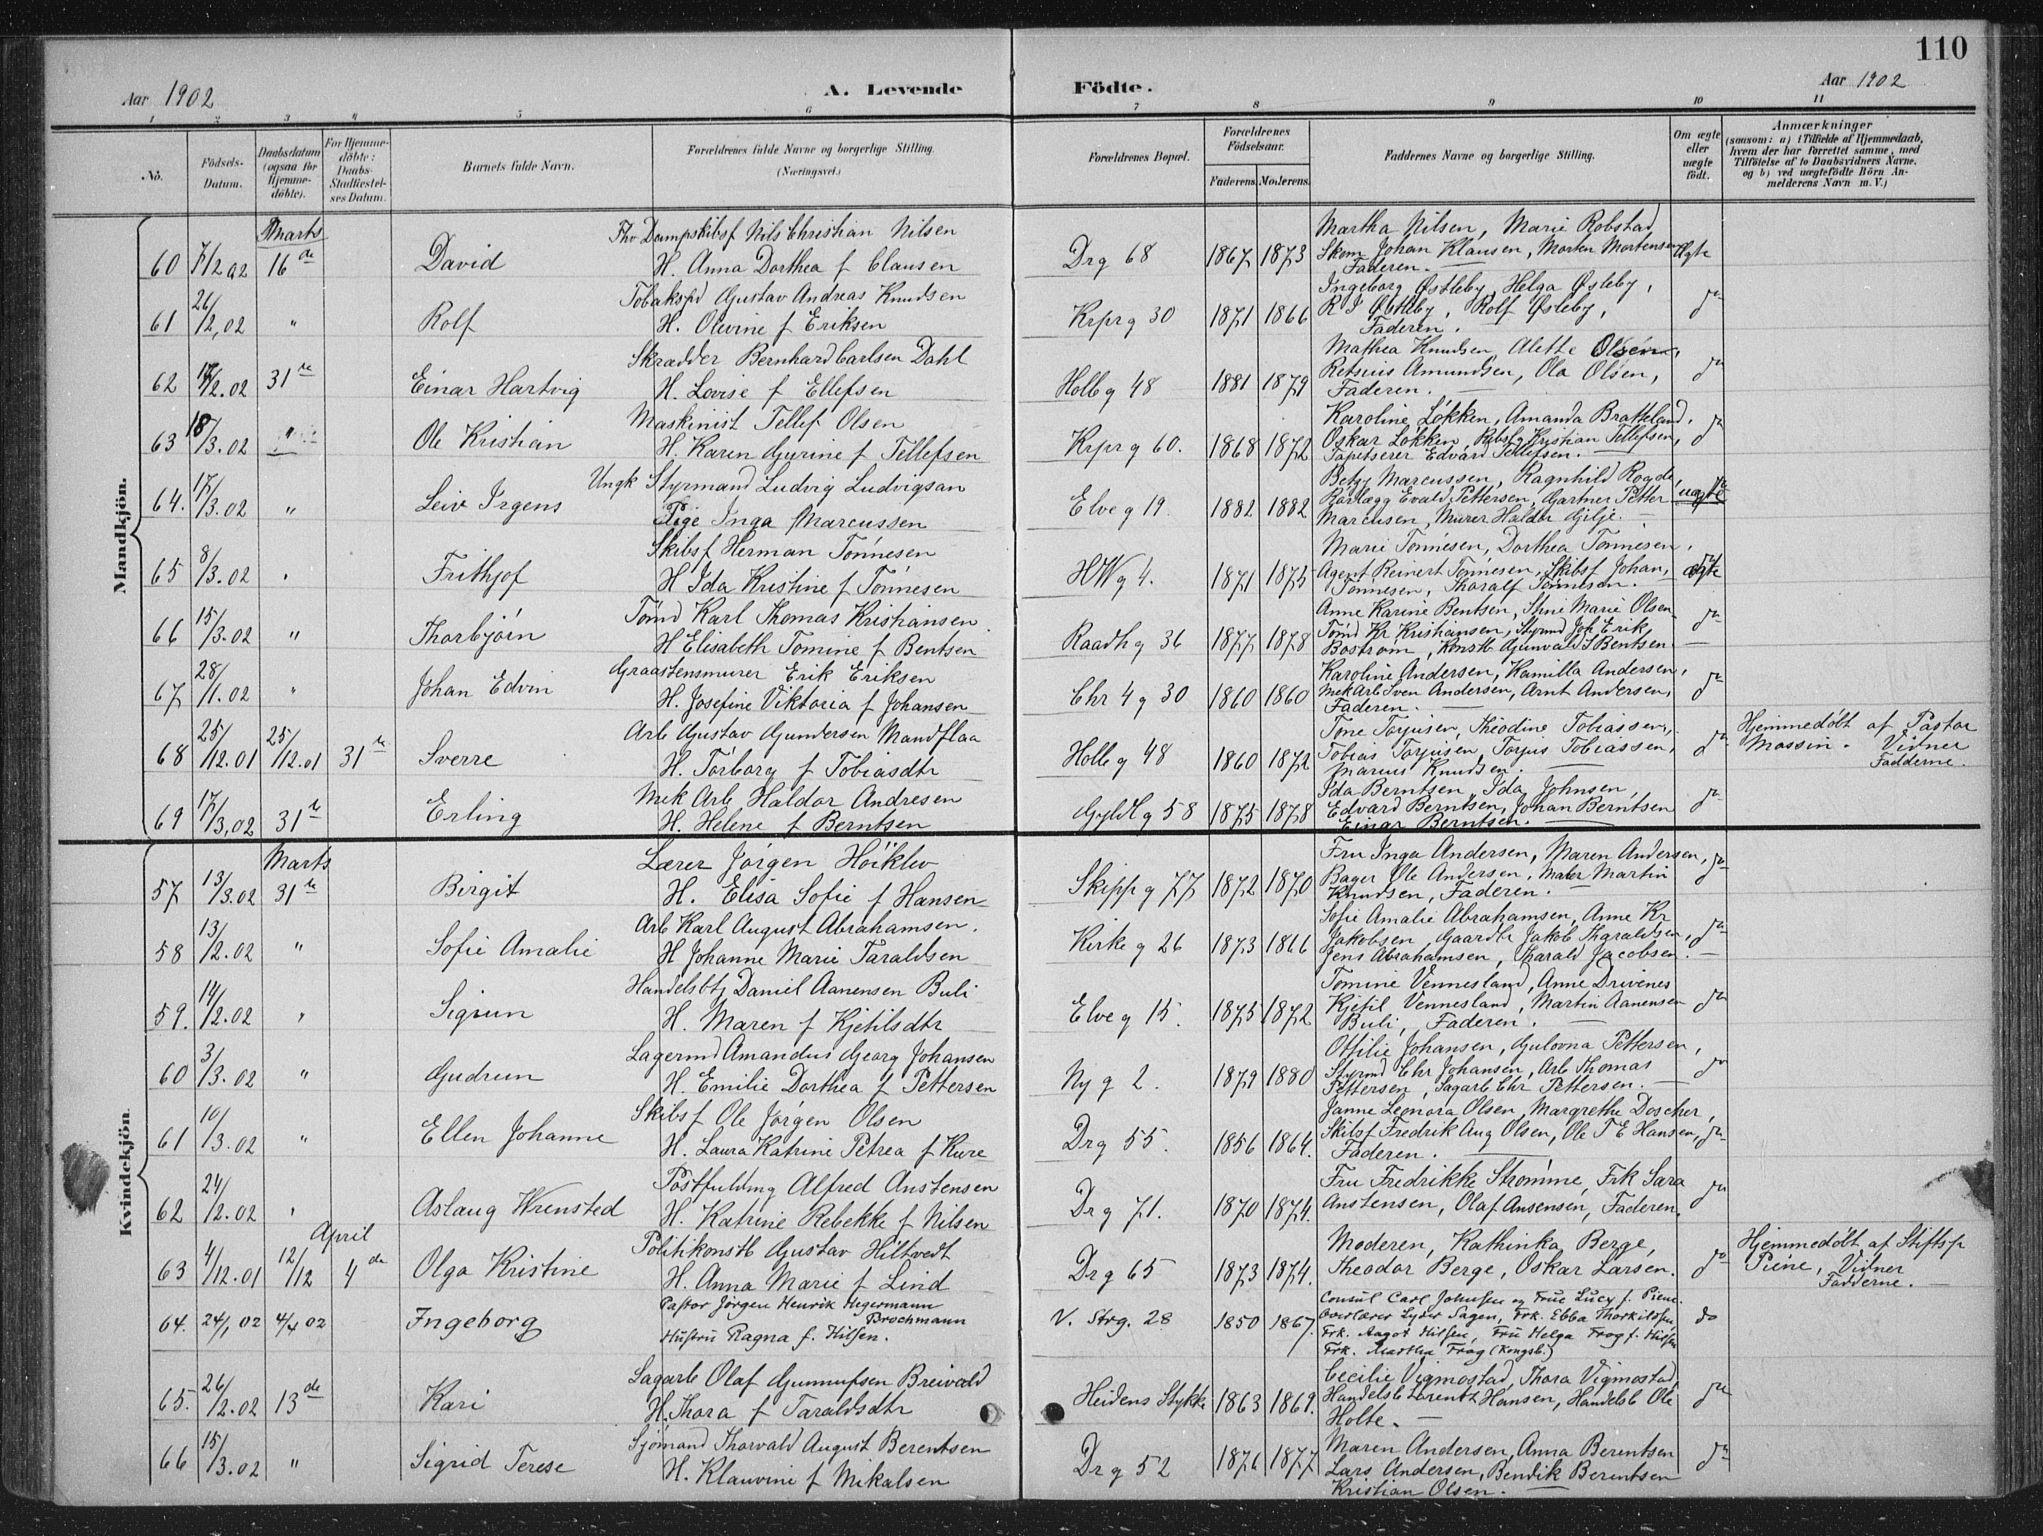 110
Aar 1902
A. Levende
Födte.
Aar 1902
1 2 3 4 5 6 7 8 9 10 11
No.
Födsels-
Datum.
Daabsdatum
(ogsaa for
Hjemme-
döbte).
For Hjemme-
döbte:
Daabs-
Stadfæstel-
ses Datum.
Barnets fulde Navn.
Forældrenes fulde Navne og borgerlige Stilling.
(Næringsvei.)
Forældrenes Bopæl.
Forældrenes
Födselsaar.
Faderens. Moderens.
Faddernes Navne og borgerlige Stilling.
Om ægte
eller
uægte
födt.
Anmærkninger
(saasom: a) i Tilfælde af Hjemmedaab,
hvem der har forrettet samme, med
Tilföielse af to Daabsvidners Navne,
og b) ved uægtefödte Börn An-
melderens Navn m. V.)
Mandkjön.
Marts
60 7/2 02 16de David
Fhv Dampskibsf Nils Christian Nilsen
H. Anna Dorthea f Clausen
Drg 68 1867 1873
Martha Nilsen, Marie Robstad
Skom Johan Klausen, Morten Mortensen
Faderen.
Ægte
61 26/2,02 " Rolf
Tobakspd Gustav Andreas Knudsen
H. Olevine f Eriksen
Krprg 30 1871 1866
Ingeborg Østleby, Helga Øsleby,
R I Østleby, Rolf Øsleby,
Faderen.
do
62 /2.02 31te Einar Hartvig
Skrædder Bernhard Carlsen Dahl
H. Lovise f Ellefsen
Holbg 48 1881 1879
Mathea Knudsen, Alette Olsen,
Retsius Amundsen, Ola Olsen,
Faderen.
do
63 18/3.02 " Ole Kristian
Maskinist Tellef Olsen
H. Karen Gurine f Tellefsen
Krprg 60. 1868 1872
Karoline Løkken, Amanda Bratteland,
Oskar Løkken, Rebsl Kristian Tellefsen,
Tapetserer Edvard Tellefsen.
do
64. 17/3.02 " Leiv Irgens
Ungk Styrmand Ludvig Ludvigsen
Pige Inga Marcussen
Elveg 19. 1882 1882
Betzy Marcussen, Ragnhild Rogde,
Evald Pettersen, Gartner Petter
Marcusen, Murer Haldor Gilje.
uægte
65 8/3.02 " Frithjof
Skibsf Herman Tønnesen
H Ida Kristine f Tønnesen
HWg 4. 1871 1875
Marie Tønnesen, Dorthea Tønnesen,
Agent Reinert Tønnesen, Skibsf Johan,
Tønnesen, Thoralf Tønnesen.
ægte
66 15/3.02 " Thorbjørn
Tømd Karl Thomas Kristiansen
H Elisabeth Tomine f Bentsen
Raadhg 36 1877 1878
Anne Karine Bentsen, Stine Marie Olsen
Tømd Kr Kristiansen, Styrmd Joh Erik,
Bostrøm, Konstb Gunvald S Bentsen
do
67 28/1.02 " Johan Edvin
Graastensmurer Erik Eriksen
H. Josefine Viktoria f Johansen
Chr 4 g 30 1860 1860
Karoline Andersen, Kamilla Andersen,
Mek Arb Sven Andersen, Arnt Andersen,
Faderen.
do
68 25/12.01 25/12.01 31te Sverre
Arb Gustav Gundersen Mandflaa
H. Torborg f Tobiasdtr
Holbg 48 1860 1872
Tone Torjusen, Theodine Tobiassen,
Tobias Torjusen, Torjus Tobiassen,
Marius Knudsen.
do
Hjemmedøbt af Pastor
Mossin. Vidner
Fadderne.
69 17/3,02 31te Erling
Mek Arb Haldor Andresen
H. Helene f Berntsen
Gyldlg 58 1875 1878
Ida Berntsen, Ida Johnsen,
Edvard Berntsen, Johan Berntsen
Einar Berntsen.
do
Kvindekjön.
Marts
57 13/3.02 31te Birgit
Lærer Jørgen Høiklev
H. Elisa Sofie f Hansen
Skippg 77 1872 1870
Fru Inga Andersen, Maren Andersen,
Bager Ole Andersen, Maler Martin
Knudsen, Faderen.
do
58 13/2.02 " Sofie Amalie
Arb Karl August Abrahamsen.
H Johanne Marie Taraldsen
Kirkeg 26 1873 1866
Sofie Amalie Abrahamsen, Anne Kr
Jakobsen, Gaardbr Jakob Tharaldsen,
Jens Abrahamsen, Tharald Jacobsen.
do
59. 14/2.02 " Sigrun
Handelsbtj Daniel Aanensen Buli
H. Maren f Kjetilsdtr
Elveg 15. 1875 1872
Tomine Vennesland, Anne Drivenes
Kjetil Vennesland, Martin Aanensen
Buli, Faderen.
do
60 3/3.02 " Gudrun
Lagermd Amandus Georg Johansen
H. Emilie Dorthea f Pettersen
Nyg 2. 1879 1880
Ottilie Johansen, Gulovna Pettersen,
Styrmd Chr Johansen, Arb Thomas
Pettersen, Sagarb Chr Pettersen.
do
61 10/3.02 " Ellen Johanne
Skibsf Ole Jørgen Olsen
H. Laura Katrine Petrea f Kure
Drg 55. 1856 1864.
Janne Leonora Olsen, Margrethe Doscher,
Skibsf Fredrik Aug Olsen, Ole T E Hansen,
Faderen.
do
62 24/2.02 " Aslaug Wrensted
Postfuldmg Alfred Anstensen
H. Katrine Rebekke f Nilsen
Drg 71. 1870 1874.
Fru Fredrikke Strømme, Frk Sara
Anstensen, Olaf Ansensen, Faderen.
do
April
63 4/12.01 12/12 4de Olga Kristine
Politikonstb Gustav Hiltvedt
H. Anna Marie f Lind
Drg 65 1873 1874.
Moderen, Kathinka Berge,
Theodor Berge, Oskar Larsen.
do
Hjemmedøbt af Stiftsp
Piene, Vidner
Fadderne.
64. 24/1 02 4/4 02 Ingeborg
Pastor Jörgen Henrik Hegermann
Brochmann
Hustru Ragna f. Nilsen.
V. Strg. 28 1850 1867.
Consul Carl Johnsen og Frue Lucy f. Piene.
Overlærer Lyder Sagen, Frk. Ebba Thorkildsen,
Frk. Aagot Nilsen, Fru Helga Frog f. Nilsen
Frk. Martha Frog (Kongsb.)
do
65. 26/2.02 13de Kari
Sagarb Olaf Gunnufsen Breivold
H. Thora f Taraldsdtr
Heidens Stykke 1863 1869.
Cecilie Vigmostad, Thora Vigmostad,
Handelsb Larentz Hansen, Handelsb Ole
Holte.
do
66 15/3.02 " Sigrid Terese
Sjømand Thorvald August Berentsen
H. Klauvine f Mikalsen
Drg 52 1876 1877
Maren Andersen, Anna Berentsen
Lars Andersen, Bendik Berentsen
Kristian Olsen.
do